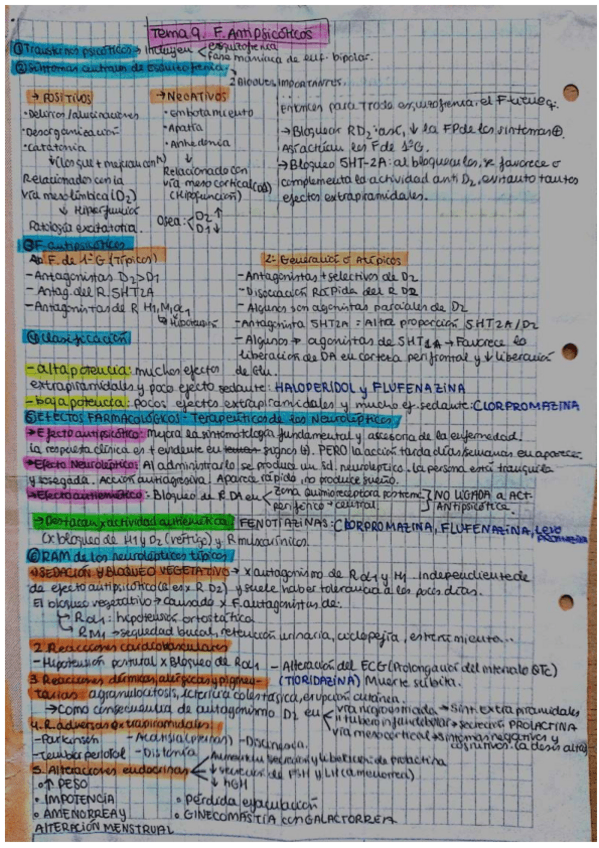 Tema 9. F. Antipsicóticos
① Trastornos psicóticos → Incluyen < esquizofrenia
fase maníaca de enf. bipolar.
② Síntomas de esquizofrenia
2 Bloques importantes.
→ POSITIVOS
- Delirios/alucinaciones
- Desorganización
- Catatonia
↓ (Los que + mejoran con N)
Relacionados con la
vía mesolímbica (D2)
↓ Hiperfunción
Patología excitatoria.
→ NEGATIVOS
- embotamiento
- Apatía
- Anhedonia
↓
Relacionado con
vía mesocortical
(Hipofunción)
Osea: < D2 ↑
D1 ↓
Entonces para esquizofrenia: el F
→ Bloquear RD2: así, ↓ la FP de los síntomas ⊕.
Así actúan los F de 1ªG.
→ Bloqueo 5HT-2A: al bloquearlos, se favorece o
complementa la actividad anti D2, evitando tantos
efectos extrapiramidales.
③ F. antipsicóticos
F. de 1ªG (Típicos)
- Antagonistas D2>D1
- Antag. del R 5HT2A
- Antagonistas de R H1, M, α1
↳ Hipotensión
2- Generación o Atípicos
- Antagonistas + selectivos de D2
- Disociación Rápida del R D2
- Algunos son agonistas parciales de D2
- Antagonista 5HT2A = Alta proporción 5HT2A/D2
- Algunos → agonistas de 5HT1A → Favorece la
liberación de DA en corteza prefrontal y ↓ liberación
de Glu.
④ Clasificación
- alta potencia: muchos efectos
extrapiramidales y poco efecto sedante: HALOPERIDOL y FLUFENAZINA
- baja potencia: pocos efectos extrapiramidales y mucho ef. sedante: CLORPROMAZINA
⑤ EFECTOS FARMACOLÓGICOS - Terapéuticos de los Neurolépticos
→ Efecto antipsicótico: mejora la sintomatología fundamental y accesoria de la enfermedad.
la respuesta clínica es + evidente en signos ⊕. PERO la acción tarda días/semanas en aparecer.
→ Efecto Neuroléptico: Al administrarlo se produce un sd. neuroléptico. la persona está tranquila
y sosegada. Acción antiagresiva. Aparece rápido, no produce sueño.
→ Efecto antiemético: Bloqueo de R. DA en < zona quimiorreceptora postrema
periférico + central. } NO LIGADA a ACT.
ANTIPSICÓTICA.
→ Destacan x actividad antiemética: FENOTIAZINAS: CLORPROMAZINA, FLUFENAZINA,
(x bloqueo de H1 y D2 (vértigo) y R muscarínicos.
⑥ RAM de los neurolépticos típicos
1. SEDACIÓN Y BLOQUEO VEGETATIVO → x antagonismo de Rα1 y H1. Independiente de
efecto antipsicótico (es x R D2) y suele haber tolerancia a los pocos días.
El bloqueo vegetativo → causado x F. antagonistas de:
Rα1: hipotensión ortostática
RM1 → sequedad bucal, retención urinaria, cicloplejía, estreñimiento...
2. Reacciones cardiovasculares
- Hipotensión postural x Bloqueo de Rα1 - Alteración del ECG (Prolongación del intervalo QTc)
(TIORIDAZINA) Muerte súbita.
3. Reacciones dérmicas, alérgicas y pigmen-
tarias agranulocitosis, ictericia colestásica, erupción cutánea.
→ Como consecuencia de antagonismo D2 en < vía nigroestriada → sínt. extrapiramidales
tuberoinfundibular → secreción PROLACTINA
vía mesocortical → síntomas negativos y
cognitivos. (a dosis altas)
4. R. adversas extrapiramidales.
- Parkinson - Acatisia (piernas) - Discinesia.
- Temblor perioral - Distonía
5. Alteraciones endocrinas < Aumentan secreción y liberación de prolactina
↓ secreción de FSH y LH (amenorrea)
↓ hGH
o ↑ PESO
• IMPOTENCIA
o AMENORREA y
ALTERACIÓN MENSTRUAL
• Pérdida eyaculación
o GINECOMASTIA con GALACTORREA